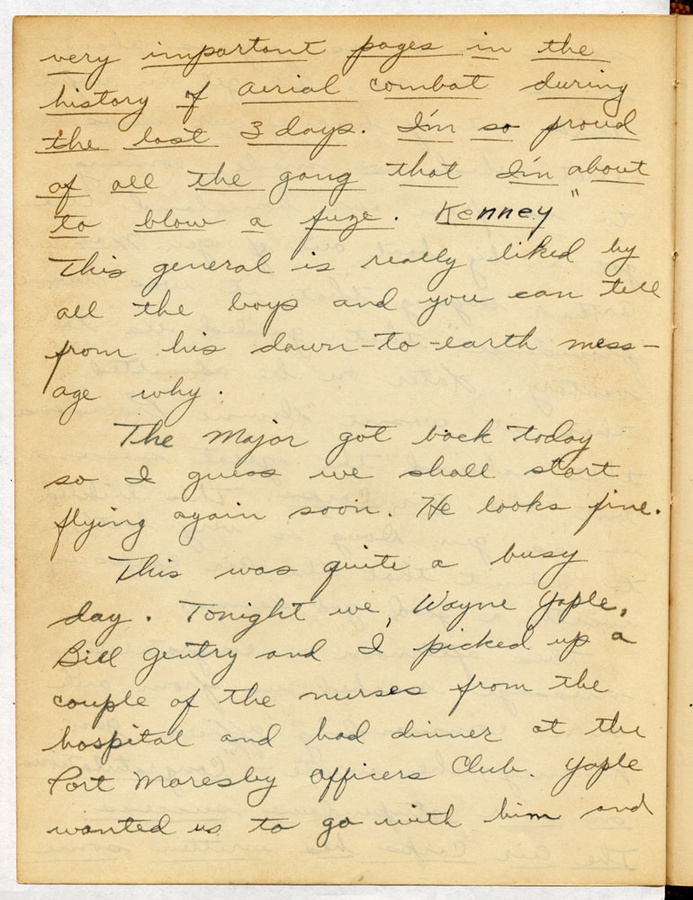 very important pages in the
history of aerial combat during
the last 3 days. I'm so proud
of all the gang that I'm about
to blow a fuze. Kenney"
This general is really liked by
all the boys and you can tell
from his down-to-earth mess-
age why.
The Major got back today
so I guess we shall start
flying again soon. He looks fine.
This was quite a busy
day. Tonight we, Wayne Yaple,
Bill Gentry and I picked up a
couple of the nurses from the
hospital and had dinner at the
Port Moresby Officers Club. Yaple
wanted us to go with him and